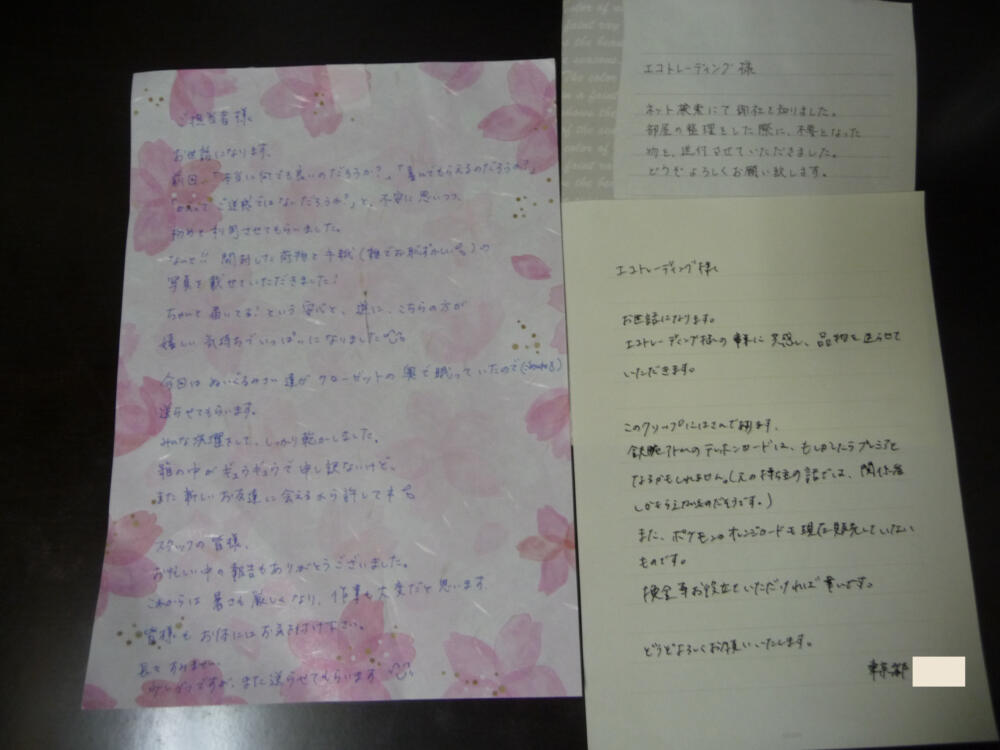 ご担当者様
お世話になります。
前回、「本当に何でも良いのだろうか?」、「喜んでもらえるのだろうか?」
「かえってご迷惑ではないだろうか?」と、不安に思いつつ、
初めて利用させてもらいました。
なんと!! 開封した荷物と手紙(雑でお恥ずかしい)の
写真を載せていただきました!
ちゃんと届いてる!という安心と、逆に、こちらの方が
嬉しい気持ちでいっぱいになりました
今回はぬいぐるみさん達がクローゼットの奥で眠っていたので
送らせてもらいます。
みんな洗濯をして、しっかり乾かしました。
箱の中がギュウギュウで申し訳ないけど、
また新しいお友達に会えるから許してネ
スタッフの皆様、
お忙しい中の報告もありがとうございました。
これからは暑さも厳しくなり、作業も大変だと思います。
皆様もお体にはお気を付け下さい。
長々すみません。
ですが、また送らせてもらいます
エコトレーディング様
ネット検索にて御社を知りました。
部屋の整理をした際に、不要となった
物を、送付させていただきました。
どうぞよろしくお願い致します。
エコトレーディング様
お世話になります。
エコトレーディング様の事業に共感し、品物を送らせて
いただきます。
このクリップにはさんであります、
鉄腕アトムのテレホンカードは、もしかしたらプレミアと
なるかもしれません。(元の持ち主の話では、関係者
しかもらえないものだそうです。)
また、ポケモンのオレンジカードも現在販売していない
ものです。
換金等お役立ていただければ幸いです。
どうぞよろしくお願いいたします。
東京都